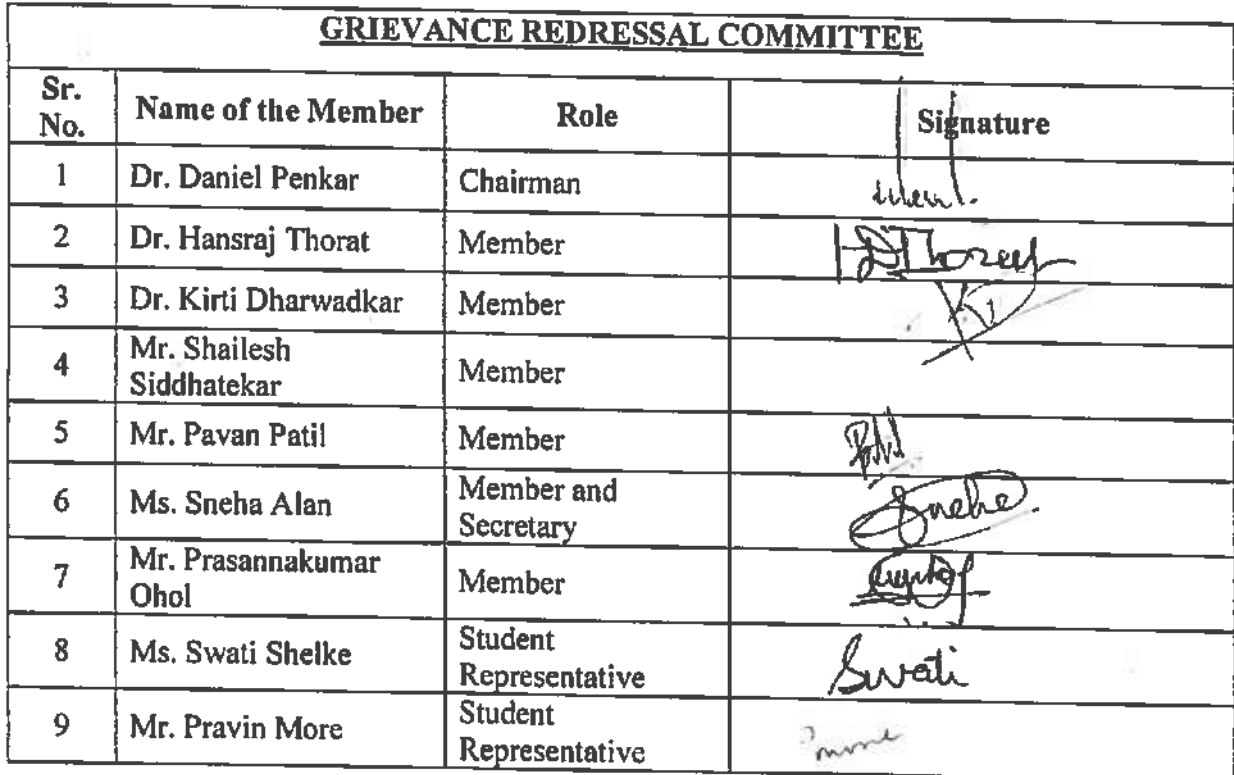 GRIEVANCE REDRESSAL COMMITTEE
Sr. No. Name of the Member Role Signature
1 Dr. Daniel Penkar Chairman
2 Dr. Hansraj Thorat Member
3 Dr. Kirti Dharwadkar Member
4 Mr. Shailesh Siddhatekar Member
5 Mr. Pavan Patil Member
6 Ms. Sneha Alan Member and Secretary Sneha
7 Mr. Prasannakumar Ohol Member
8 Ms. Swati Shelke Student Representative Swati
9 Mr. Pravin More Student Representative